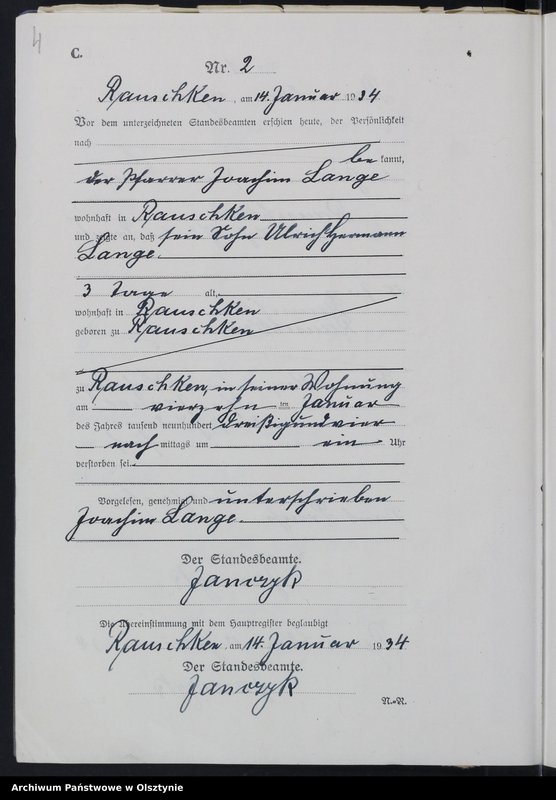 4
C.
Nr. 2
Rauschken, am 14. Januar 1934
Vor dem unterzeichneten Standesbeamten erschien heute, der Persönlichkeit
nach
be kannt,
der Pfarrer Joachim Lange
wohnhaft in Rauschken
und zeigte an, daß sein Sohn Ulrich Hermann
Lange
3 Tage alt,
wohnhaft in Rauschken
geboren zu Rauschken
zu Rauschken, in seiner Wohnung
am vierzehn ten Januar
des Jahres tausend neunhundert dreißigundvier
nach mittags um ein Uhr
verstorben sei.
Vorgelesen, genehmigt und unterschrieben
Joachim Lange.
Der Standesbeamte.
Janczyk
Die Übereinstimmung mit dem Hauptregister beglaubigt
Rauschken, am 14. Januar 1934
Der Standesbeamte.
Janczyk
N.-R.
Archiwum Państwowe w Olsztynie